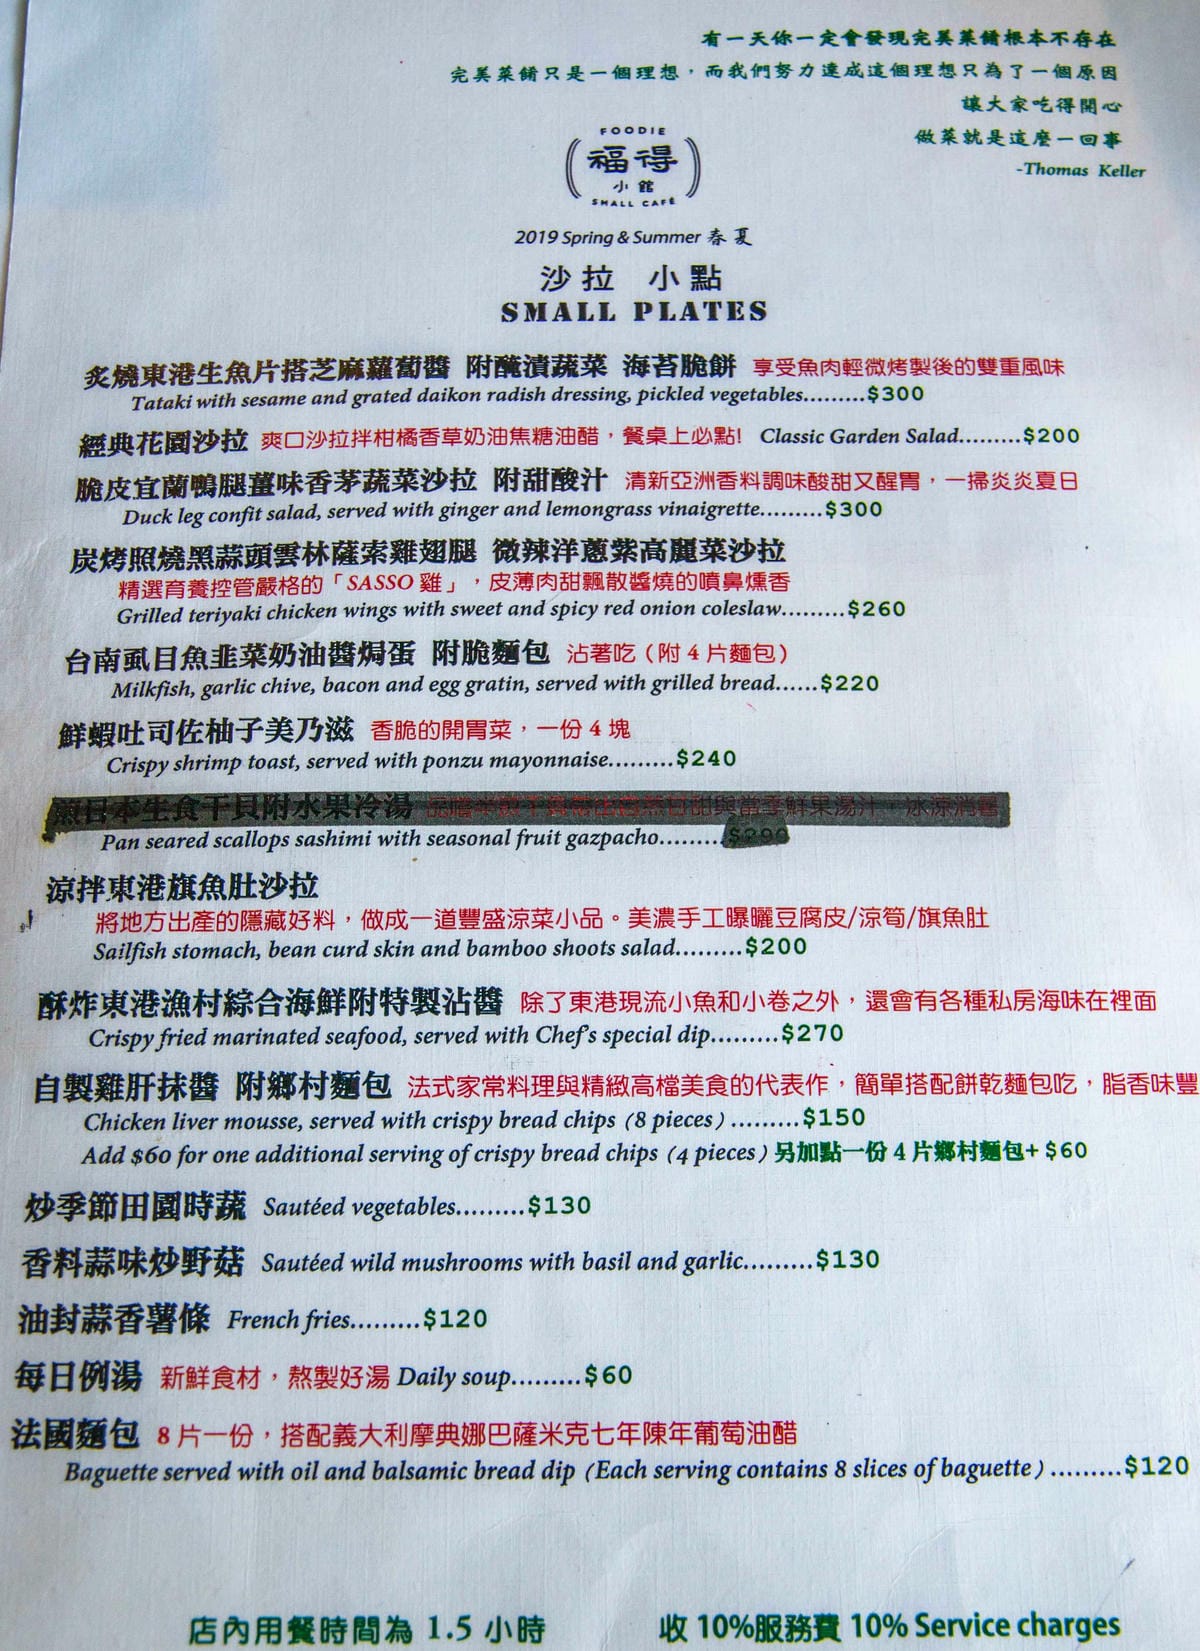 有一天你一定會發現完美菜餚根本不存在
完美菜餚只是一個理想，而我們努力達成這個理想只為了一個原因
讓大家吃得開心
做菜就是這麼一回事
-Thomas Keller
FOODIE
福得
小館
SMALL CAFÉ
2019 Spring & Summer 春夏
沙拉 小點
SMALL PLATES
炙燒東港生魚片搭芝麻蘿蔔醬 附醃漬蔬菜 海苔脆餅 享受魚肉輕微烤製後的雙重風味
Tataki with sesame and grated daikon radish dressing, pickled vegetables.........$300
經典花園沙拉 爽口沙拉拌柑橘香草奶油焦糖油醋，餐桌上必點! Classic Garden Salad.........$200
脆皮宜蘭鴨腿薑味香茅蔬菜沙拉 附甜酸汁 清新亞洲香料調味酸甜又醒胃，一掃炎炎夏日
Duck leg confit salad, served with ginger and lemongrass vinaigrette.........$300
炭烤照燒黑蒜頭雲林薩索雞翅腿 微辣洋蔥紫高麗菜沙拉
精選育養控管嚴格的「SASSO 雞」，皮薄肉甜飄散醬燒的噴鼻燻香
Grilled teriyaki chicken wings with sweet and spicy red onion coleslaw.........$260
台南虱目魚韭菜奶油醬焗蛋 附脆麵包 沾著吃 (附 4 片麵包)
Milkfish, garlic chive, bacon and egg gratin, served with grilled bread......$220
鮮蝦吐司佐柚子美乃滋 香脆的開胃菜，一份 4 塊
Crispy shrimp toast, served with ponzu mayonnaise.........$240
煎日本生食干貝附水果冷湯 與當季鮮果湯汁，冰涼消暑
Pan seared scallops sashimi with seasonal fruit gazpacho.........$290
涼拌東港旗魚肚沙拉
將地方出產的隱藏好料，做成一道豐盛涼菜小品。美濃手工曝曬豆腐皮/涼筍/旗魚肚
Sailfish stomach, bean curd skin and bamboo shoots salad.........$200
酥炸東港漁村綜合海鮮附特製沾醬 除了東港現流小魚和小卷之外，還會有各種私房海味在裡面
Crispy fried marinated seafood, served with Chef's special dip.........$270
自製雞肝抹醬 附鄉村麵包 法式家常料理與精緻高檔美食的代表作，簡單搭配餅乾麵包吃，脂香味豐
Chicken liver mousse, served with crispy bread chips (8 pieces) .........$150
Add $60 for one additional serving of crispy bread chips (4 pieces) 另加點一份 4 片鄉村麵包+ $60
炒季節田園時蔬 Sautéed vegetables.........$130
香料蒜味炒野菇 Sautéed wild mushrooms with basil and garlic.........$130
油封蒜香薯條 French fries.........$120
每日例湯 新鮮食材，熬製好湯 Daily soup.........$60
法國麵包 8 片一份，搭配義大利摩典娜巴薩米克七年陳年葡萄油醋
Baguette served with oil and balsamic bread dip (Each serving contains 8 slices of baguette) .........$120
店內用餐時間為 1.5 小時 收 10%服務費 10% Service charges